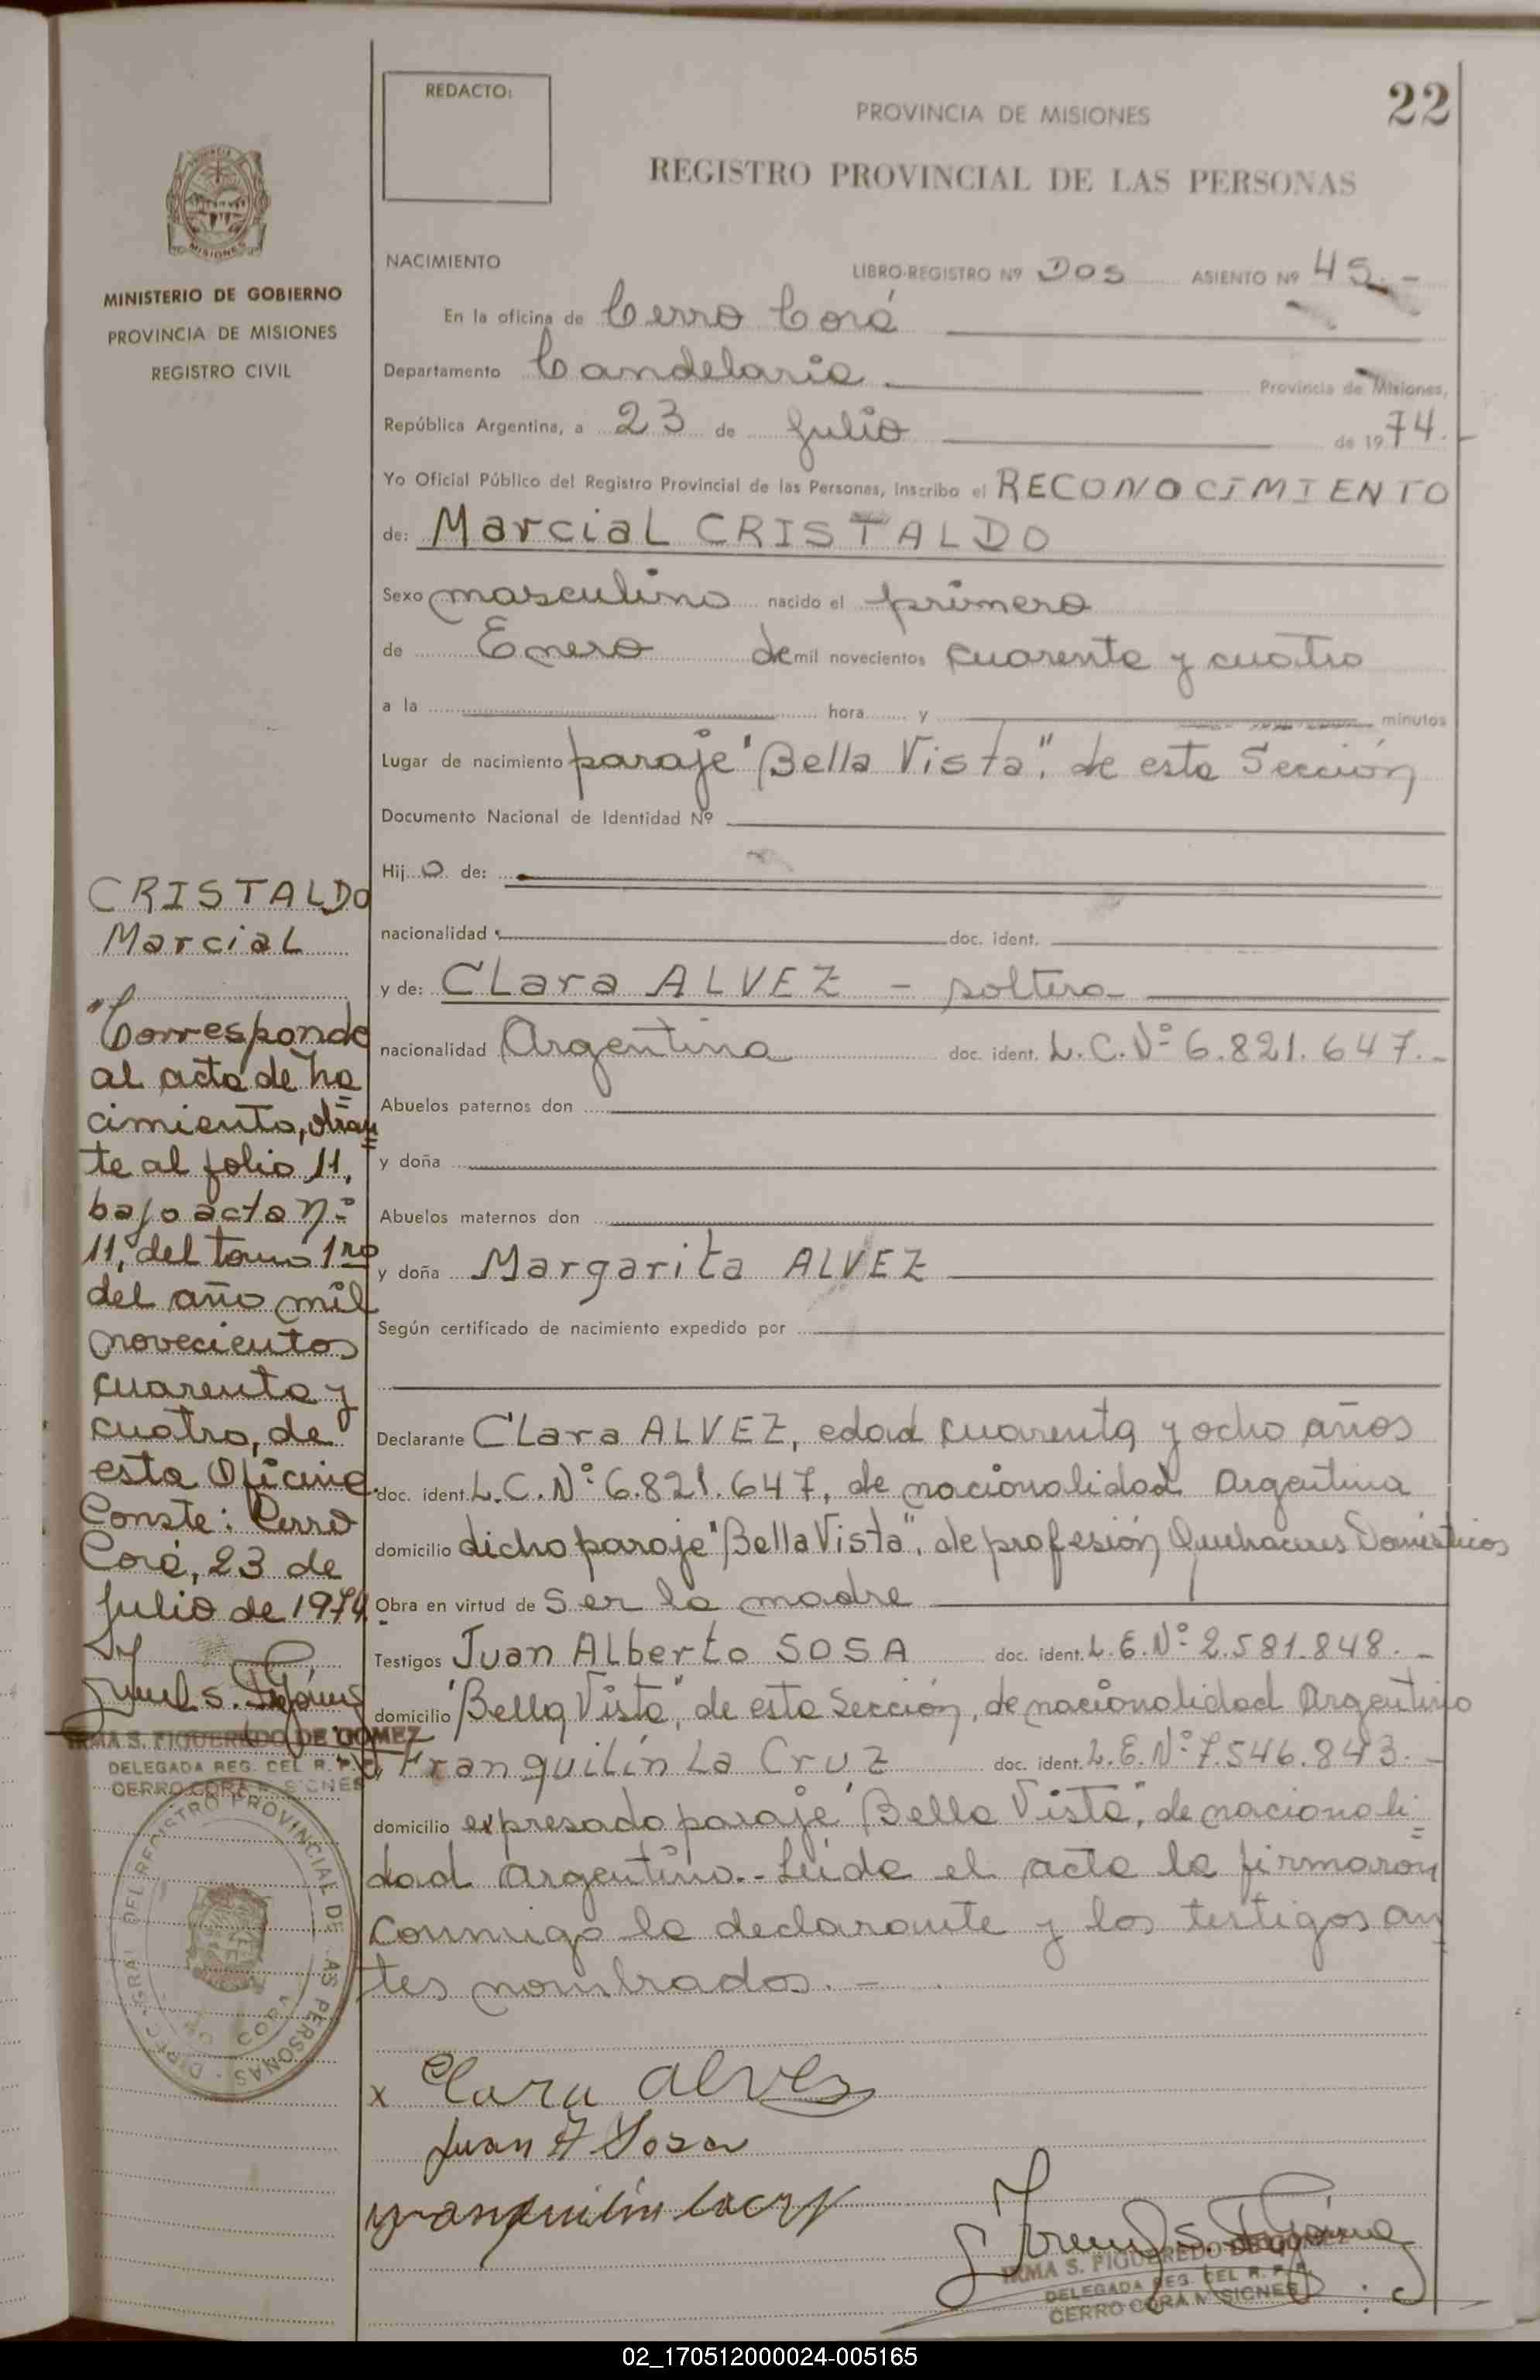 REDACTO:
22
PROVINCIA DE MISIONES
REGISTRO PROVINCIAL DE LAS PERSONAS
MISIONES
MINISTERIO DE GOBIERNO
PROVINCIA DE MISIONES
REGISTRO CIVIL
NACIMIENTO
LIBRO-REGISTRO Nº Dos ASIENTO Nº 45.-
En la oficina de Cerro Corá
Departamento Candelaria Provincia de Misiones,
República Argentina, a 23 de Julio de 1974.-
Yo Oficial Público del Registro Provincial de las Personas, inscribo el RECONOCIMIENTO
de: Marcial CRISTALDO
Sexo masculino nacido el primero
de Enero de mil novecientos cuarenta y cuatro
a la hora y minutos
Lugar de nacimiento paraje "Bella Vista", de esta Sección
Documento Nacional de Identidad Nº
Hijo de:
nacionalidad doc. ident.
y de: Clara ALVEZ - soltera
nacionalidad Argentina doc. ident. L.C.Nº 6.821.647.-
Abuelos paternos don
y doña
Abuelos maternos don
y doña Margarita ALVEZ
Según certificado de nacimiento expedido por
Declarante Clara ALVEZ, edad cuarenta y ocho años
doc. ident. L.C.Nº 6.821.647, de nacionalidad Argentina
domicilio dicho paraje "Bella Vista", de profesión Quehaceres Domésticos
Obra en virtud de ser la madre
Testigos Juan Alberto SOSA doc. ident. L.E.Nº 2.581.848.-
domicilio "Bella Vista", de esta Sección, de nacionalidad Argentino
y Franquilín La Cruz doc. ident. L.E.Nº 7.546.843.-
domicilio expresado paraje "Bella Vista", de nacionali=
dad argentino.- Leída el acta la firmaron
conmigo la declarante y los testigos an
tes nombrados.-
x Clara Alves
Juan A Sosa
IRMA S. FIGUEREDO DE GOMEZ
DELEGADA REG. DEL R. P. P.
CERRO CORA MISIONES
CRISTALDO
Marcial
"Corresponde
al acta de na
cimiento, obran
te al folio 11,
bajo acta Nº
11, del tomo 1ro
del año mil
novecientos
cuarenta y
cuatro, de
esta Oficina.
Conste: Cerro
Corá, 23 de
Julio de 1974
IRMA S. FIGUEREDO DE GOMEZ
DELEGADA REG. DEL R. P. P.
CERRO CORA MISIONES
DIREC. GRAL. DEL REGISTRO PROVINCIAL DE LAS PERSONAS
02_170512000024-005165